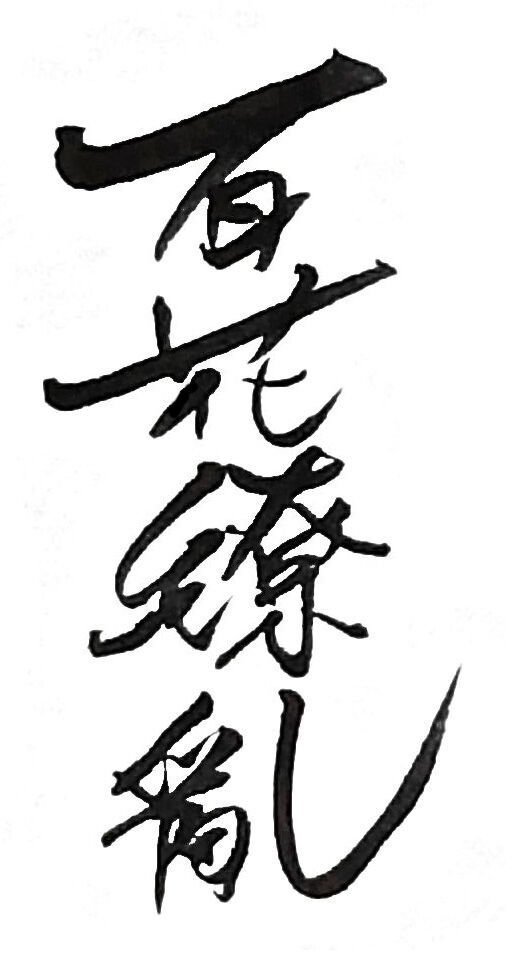 百花繚亂